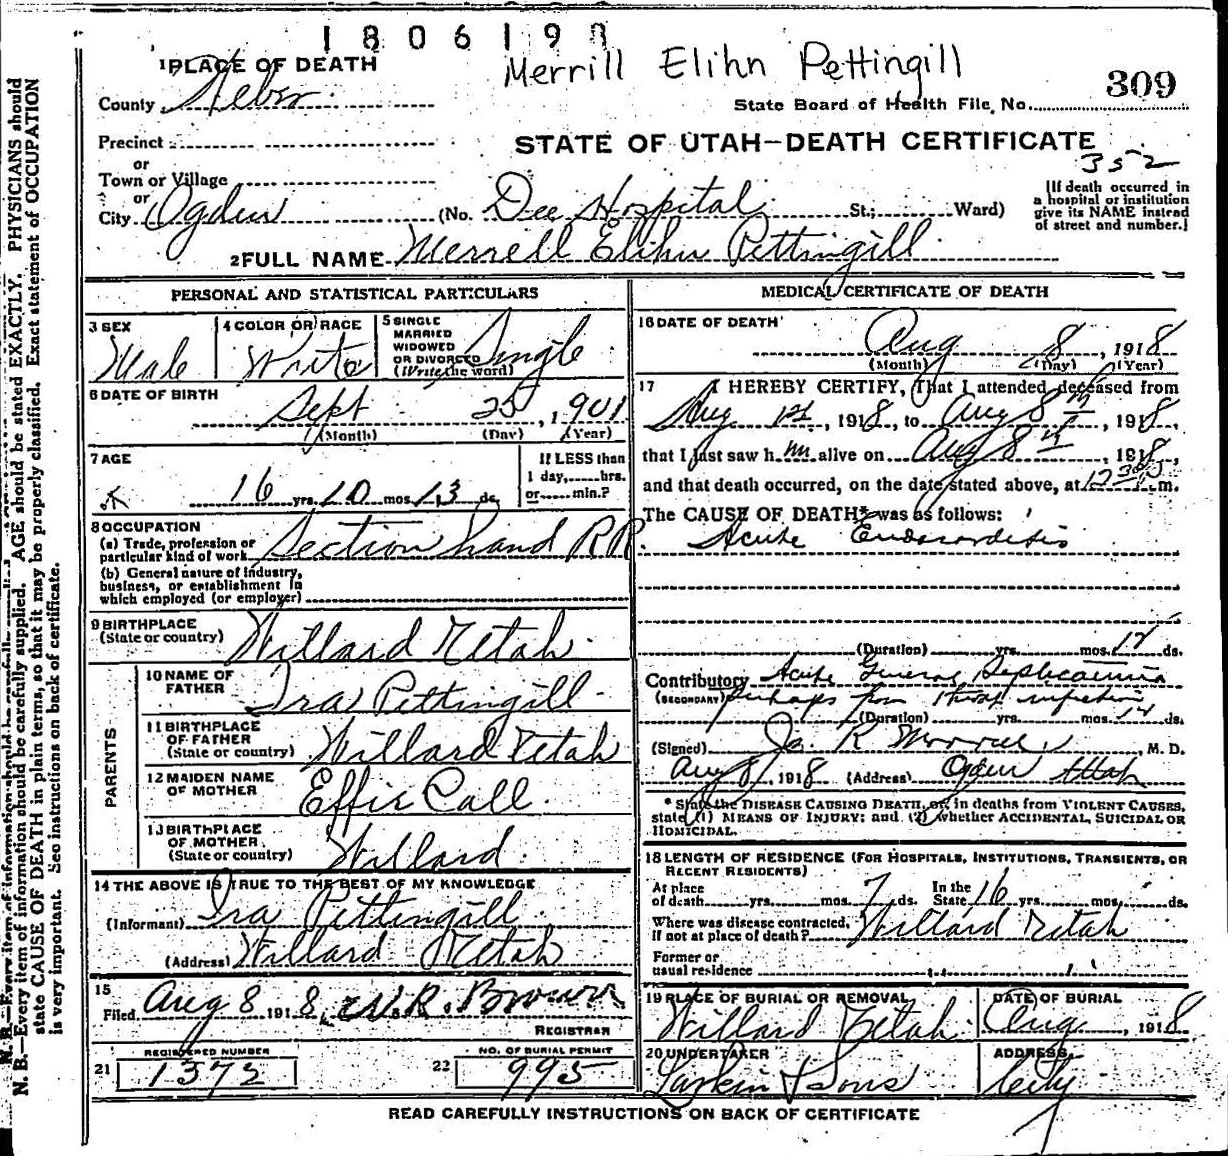 1806190
Merrill Elihn Pettingill
1 PLACE OF DEATH
309
County Weber
State Board of Health File No.
Precinct
STATE OF UTAH—DEATH CERTIFICATE
or
352
Town or Village
or
City Ogden (No. Dee Hospital St.; Ward)
[If death occurred in a hospital or institution give its NAME instead of street and number.]
2 FULL NAME Merrell Elihu Pettingill
PERSONAL AND STATISTICAL PARTICULARS
3 SEX
Male
4 COLOR OR RACE
White
5 SINGLE
MARRIED
WIDOWED
OR DIVORCED
(Write the word)
Single
6 DATE OF BIRTH
Sept 25, 1901
(Month) (Day) (Year)
7 AGE
16 yrs. 10 mos. 13 ds.
If LESS than
1 day, hrs.
or min.?
8 OCCUPATION
(a) Trade, profession or
particular kind of work Section hand RR.
(b) General nature of industry,
business, or establishment in
which employed (or employer)
9 BIRTHPLACE
(State or country) Willard Utah
PARENTS
10 NAME OF
FATHER Ira Pettingill
11 BIRTHPLACE
OF FATHER
(State or country) Willard Utah
12 MAIDEN NAME
OF MOTHER Effie Call
13 BIRTHPLACE
OF MOTHER
(State or country) Willard
14 THE ABOVE IS TRUE TO THE BEST OF MY KNOWLEDGE
(Informant) Ira Pettingill
(Address) Willard Utah
15
Filed Aug 8 1918, W.R. Brown
REGISTRAR
REGISTERED NUMBER
21 1372
NO. OF BURIAL PERMIT
22 995
MEDICAL CERTIFICATE OF DEATH
16 DATE OF DEATH
Aug 8, 1918
(Month) (Day) (Year)
17 I HEREBY CERTIFY, That I attended deceased from
Aug 1st, 1918, to Aug 8th, 1918,
that I last saw him alive on Aug 8th, 1918,
and that death occurred, on the date stated above, at 12 30 m.
The CAUSE OF DEATH* was as follows:
Acute Endocarditis
(Duration) yrs. mos. 12 ds.
Contributory Acute General Septicaemia
(SECONDARY) perhaps from throat infection
(Duration) yrs. mos. 14 ds.
(Signed) Jo. R. Morrell, M. D.
Aug 8, 1918 (Address) Ogden Utah
* State the DISEASE CAUSING DEATH, or, in deaths from VIOLENT CAUSES,
state (1) MEANS OF INJURY; and (2) whether ACCIDENTAL, SUICIDAL OR
HOMICIDAL.
18 LENGTH OF RESIDENCE (FOR HOSPITALS, INSTITUTIONS, TRANSIENTS, OR
RECENT RESIDENTS)
At place
of death yrs. mos. 7 ds.
In the
State 16 yrs. mos. ds.
Where was disease contracted,
if not at place of death? Willard Utah
Former or
usual residence
19 PLACE OF BURIAL OR REMOVAL
Willard Utah
DATE OF BURIAL
Aug, 1918
20 UNDERTAKER
Larkin & Sons
ADDRESS
City
READ CAREFULLY INSTRUCTIONS ON BACK OF CERTIFICATE
N. B.—Every item of information should be carefully supplied. AGE should be stated EXACTLY. PHYSICIANS should
state CAUSE OF DEATH in plain terms, so that it may be properly classified. Exact statement of OCCUPATION
is very important. See instructions on back of certificate.